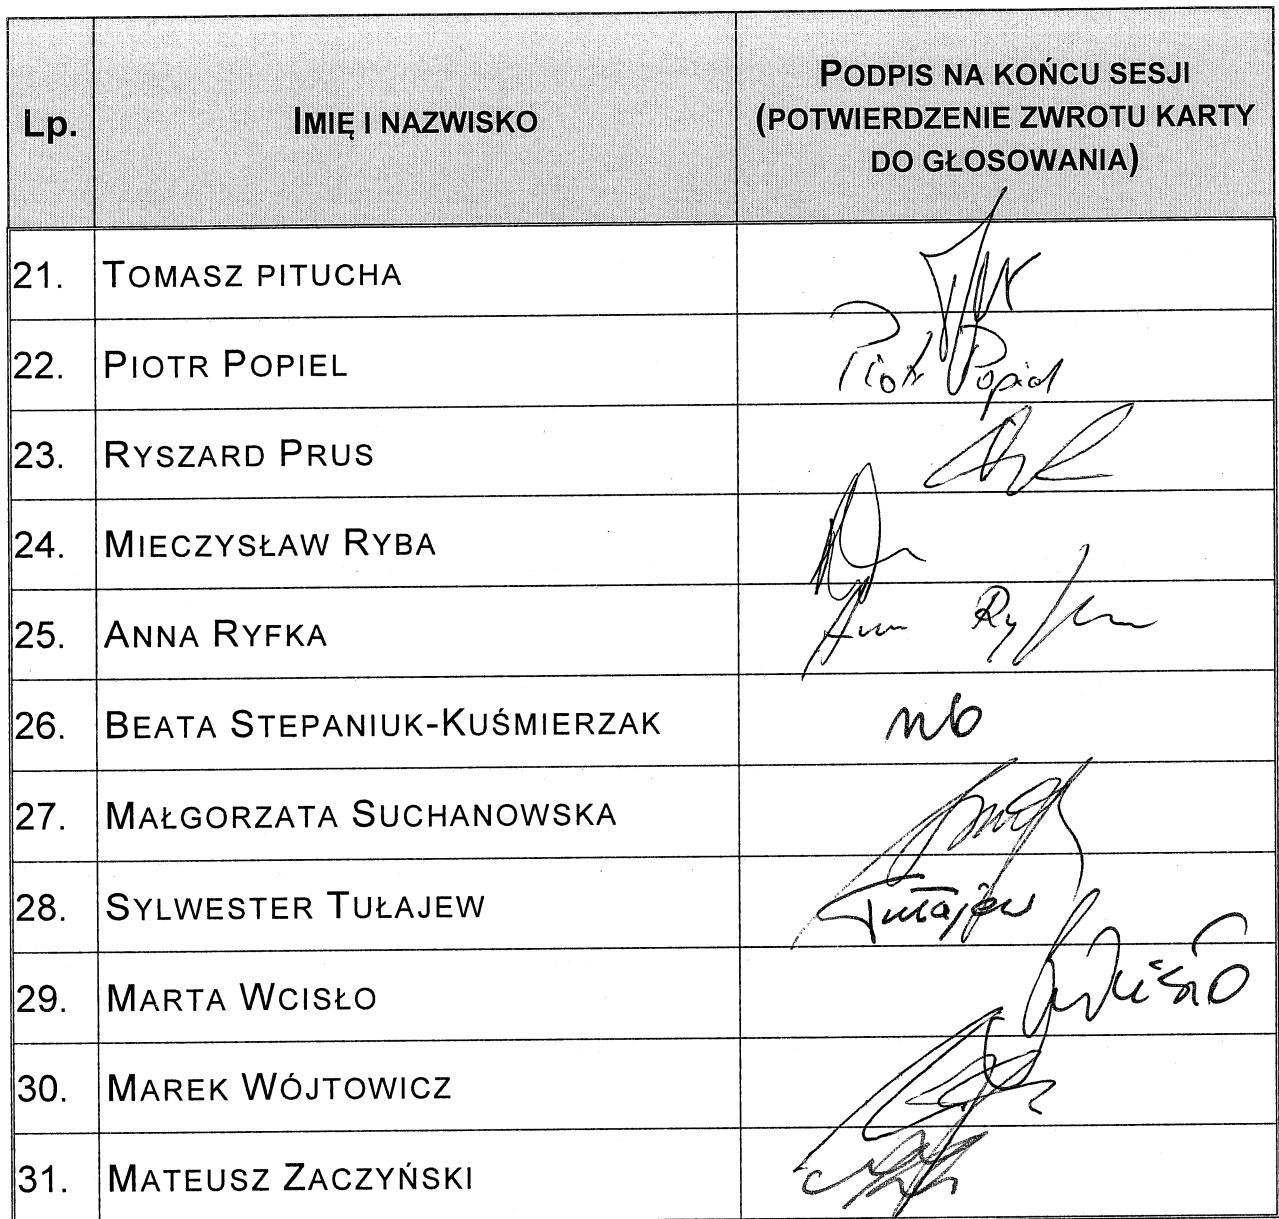 Lp.
IMIĘ I NAZWISKO
PODPIS NA KOŃCU SESJI
(POTWIERDZENIE ZWROTU KARTY
DO GŁOSOWANIA)
21. TOMASZ PITUCHA
22. PIOTR POPIEL Piotr Popiel
23. RYSZARD PRUS
24. MIECZYSŁAW RYBA
25. ANNA RYFKA Anna Ryfka
26. BEATA STEPANIUK-KUŚMIERZAK nb
27. MAŁGORZATA SUCHANOWSKA
28. SYLWESTER TUŁAJEW Tułajew
29. MARTA WCISŁO
30. MAREK WÓJTOWICZ
31. MATEUSZ ZACZYŃSKI